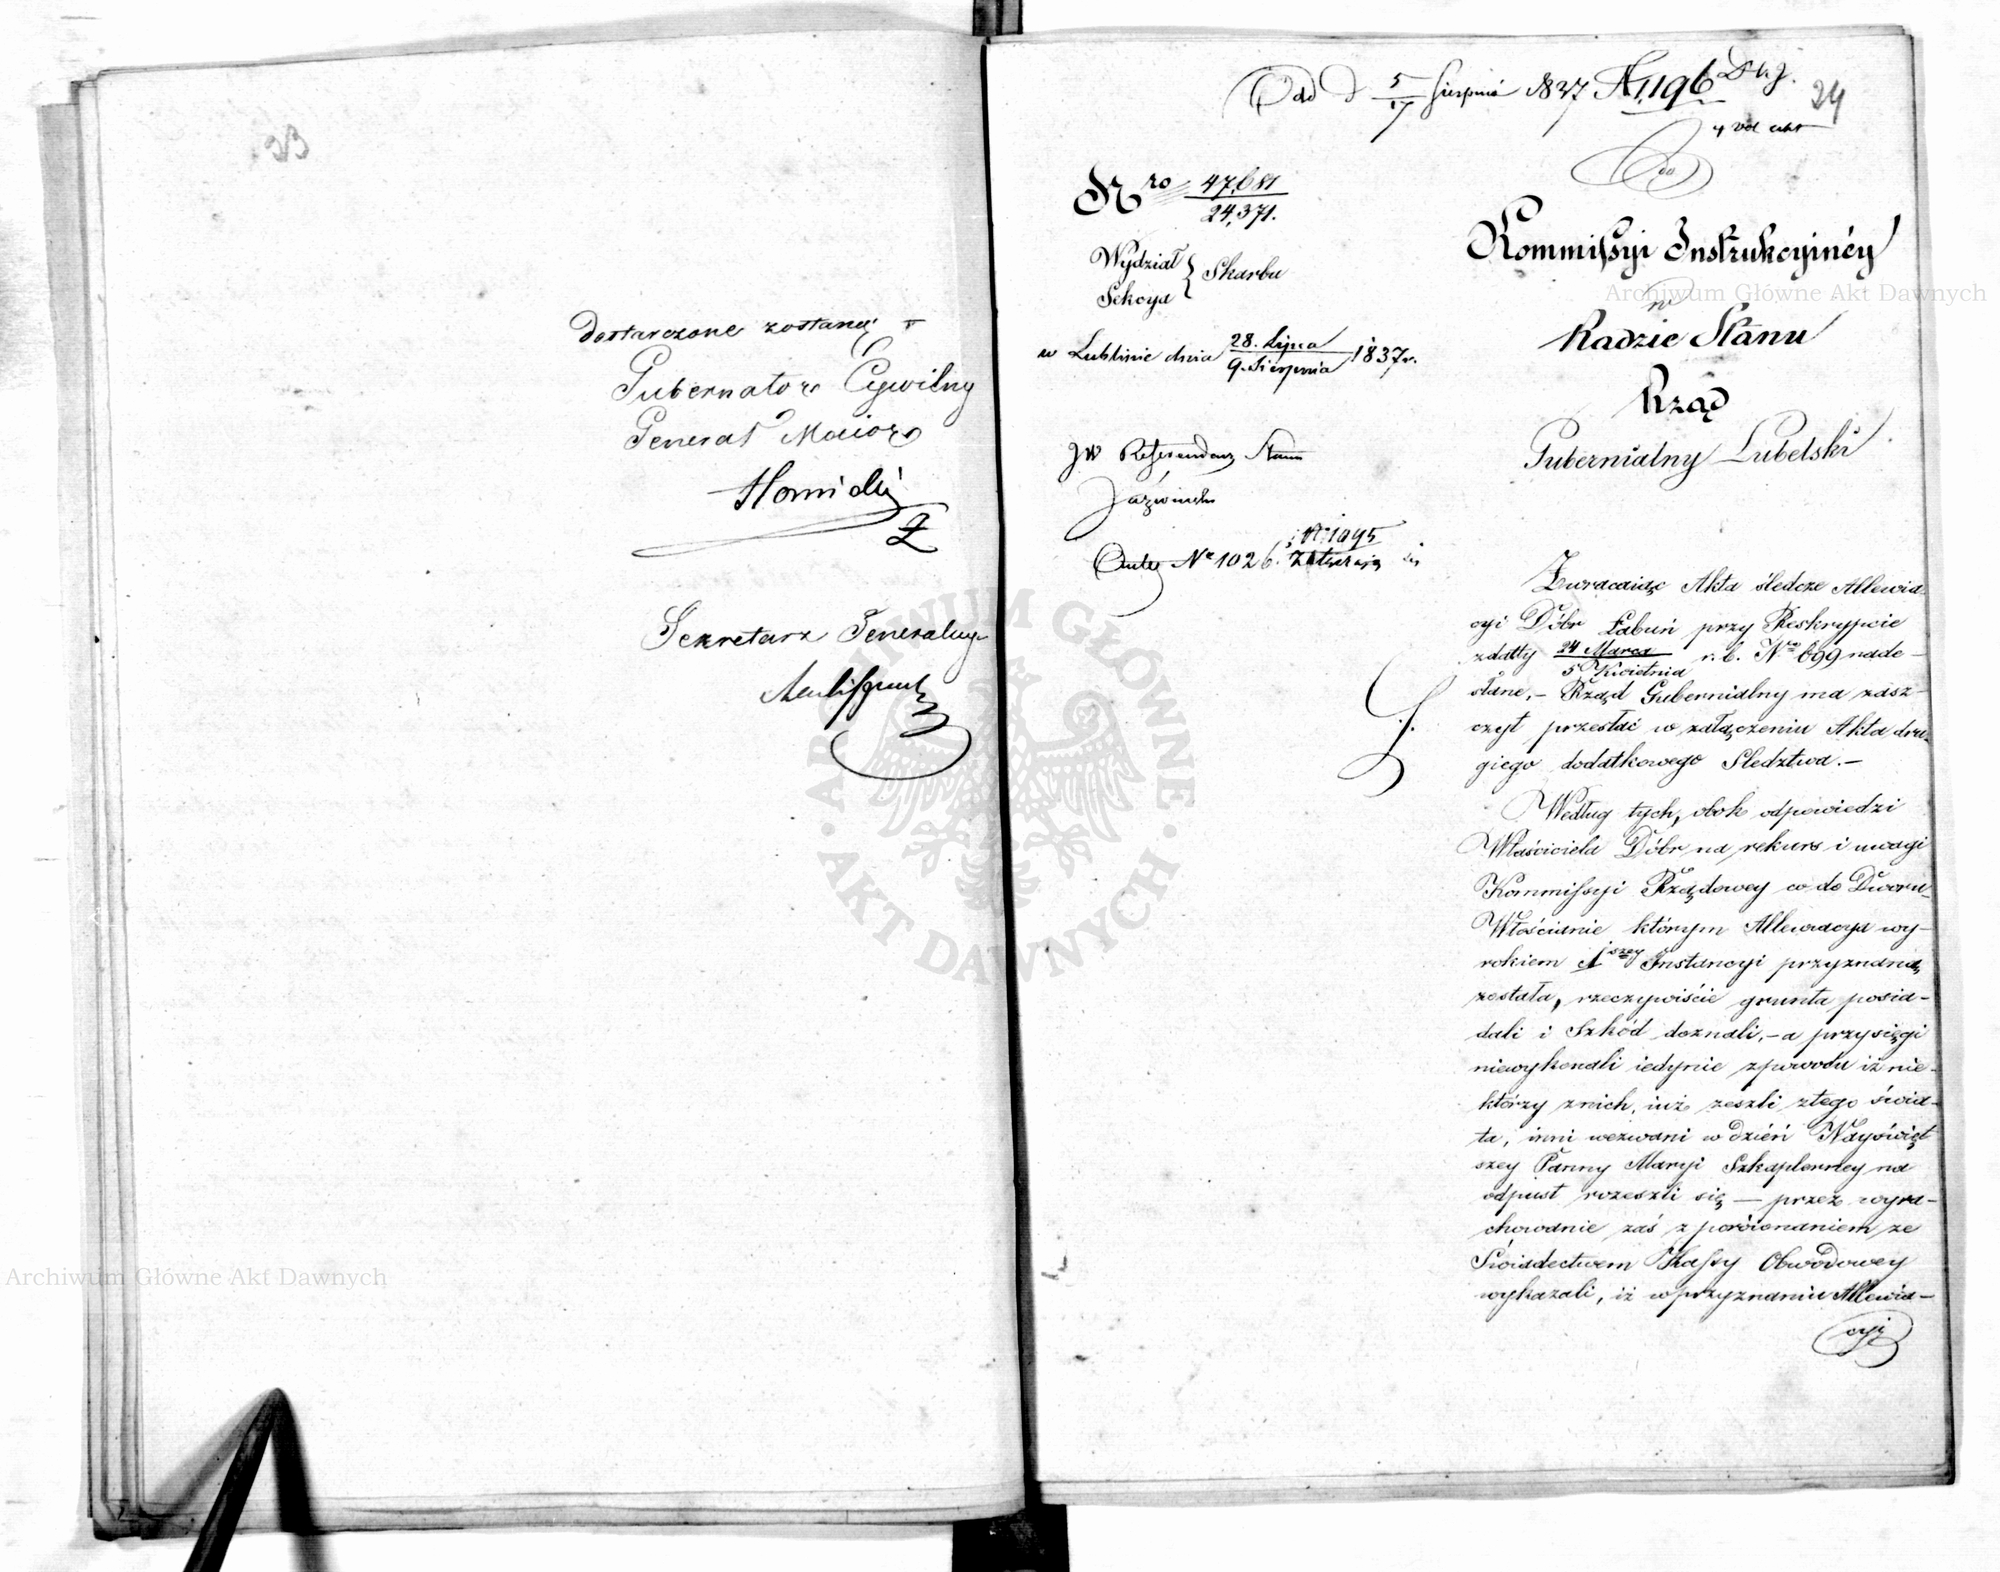 dostarczone zostaną
Gubernator Cywilny
Generał Maior
Sekretarz Generalny
Odd d 5/17 Sierpnia 1837 N 1196
24
4 vol akt
do
Nro 47,681/24,371.
Kommissyi Instrukcyinéy
Wydział
Sekcya } Skarbu
w
Radzie Stanu
w Lublinie dnia 28. Lipca/9. Sierpnia 1837 r.
Rząd
Gubernialny Lubelski
JW Referendarz Stanu
Nr 1095
Nr 1026.
Zwracaiąc Akta śledcze Allewia-
cyi Dóbr Łabuń przy Reskrypcie
z datty 24 Marca/5 Kwietnia r. b. Nro 699 nade-
słane, – Rząd Gubernialny ma zasz-
czyt przesłać w załączeniu Akta dru-
giego dodatkowego Sledztwa. –
Według tych, obok odpowiedzi
Właściciela Dóbr na rekurs i uwagi
Kommissyi Rządowey co do Dworu
Włościanie którym Allewiacya wy-
rokiem 1szey Instancyi przyznaną
została, rzeczywiście grunta posia-
dali i Szkód doznali, – a przysięgi
niewykonali iedynie z powodu iż nie-
którzy z nich, iuż zeszli z tego świa-
ta, inni wezwani w dzień Nayświęt
szey Panny Maryi Szkaplerney na
odpust rozeszli się — przez wyra-
chowanie zaś z porównaniem ze
Świadectwem Kassy Obwodowey
wykazali, iż w przyznaniu Allewia-
cyi
Archiwum Główne Akt Dawnych
Archiwum Główne Akt Dawnych
ARCHIWUM GŁÓWNE · AKT DAWNYCH ·